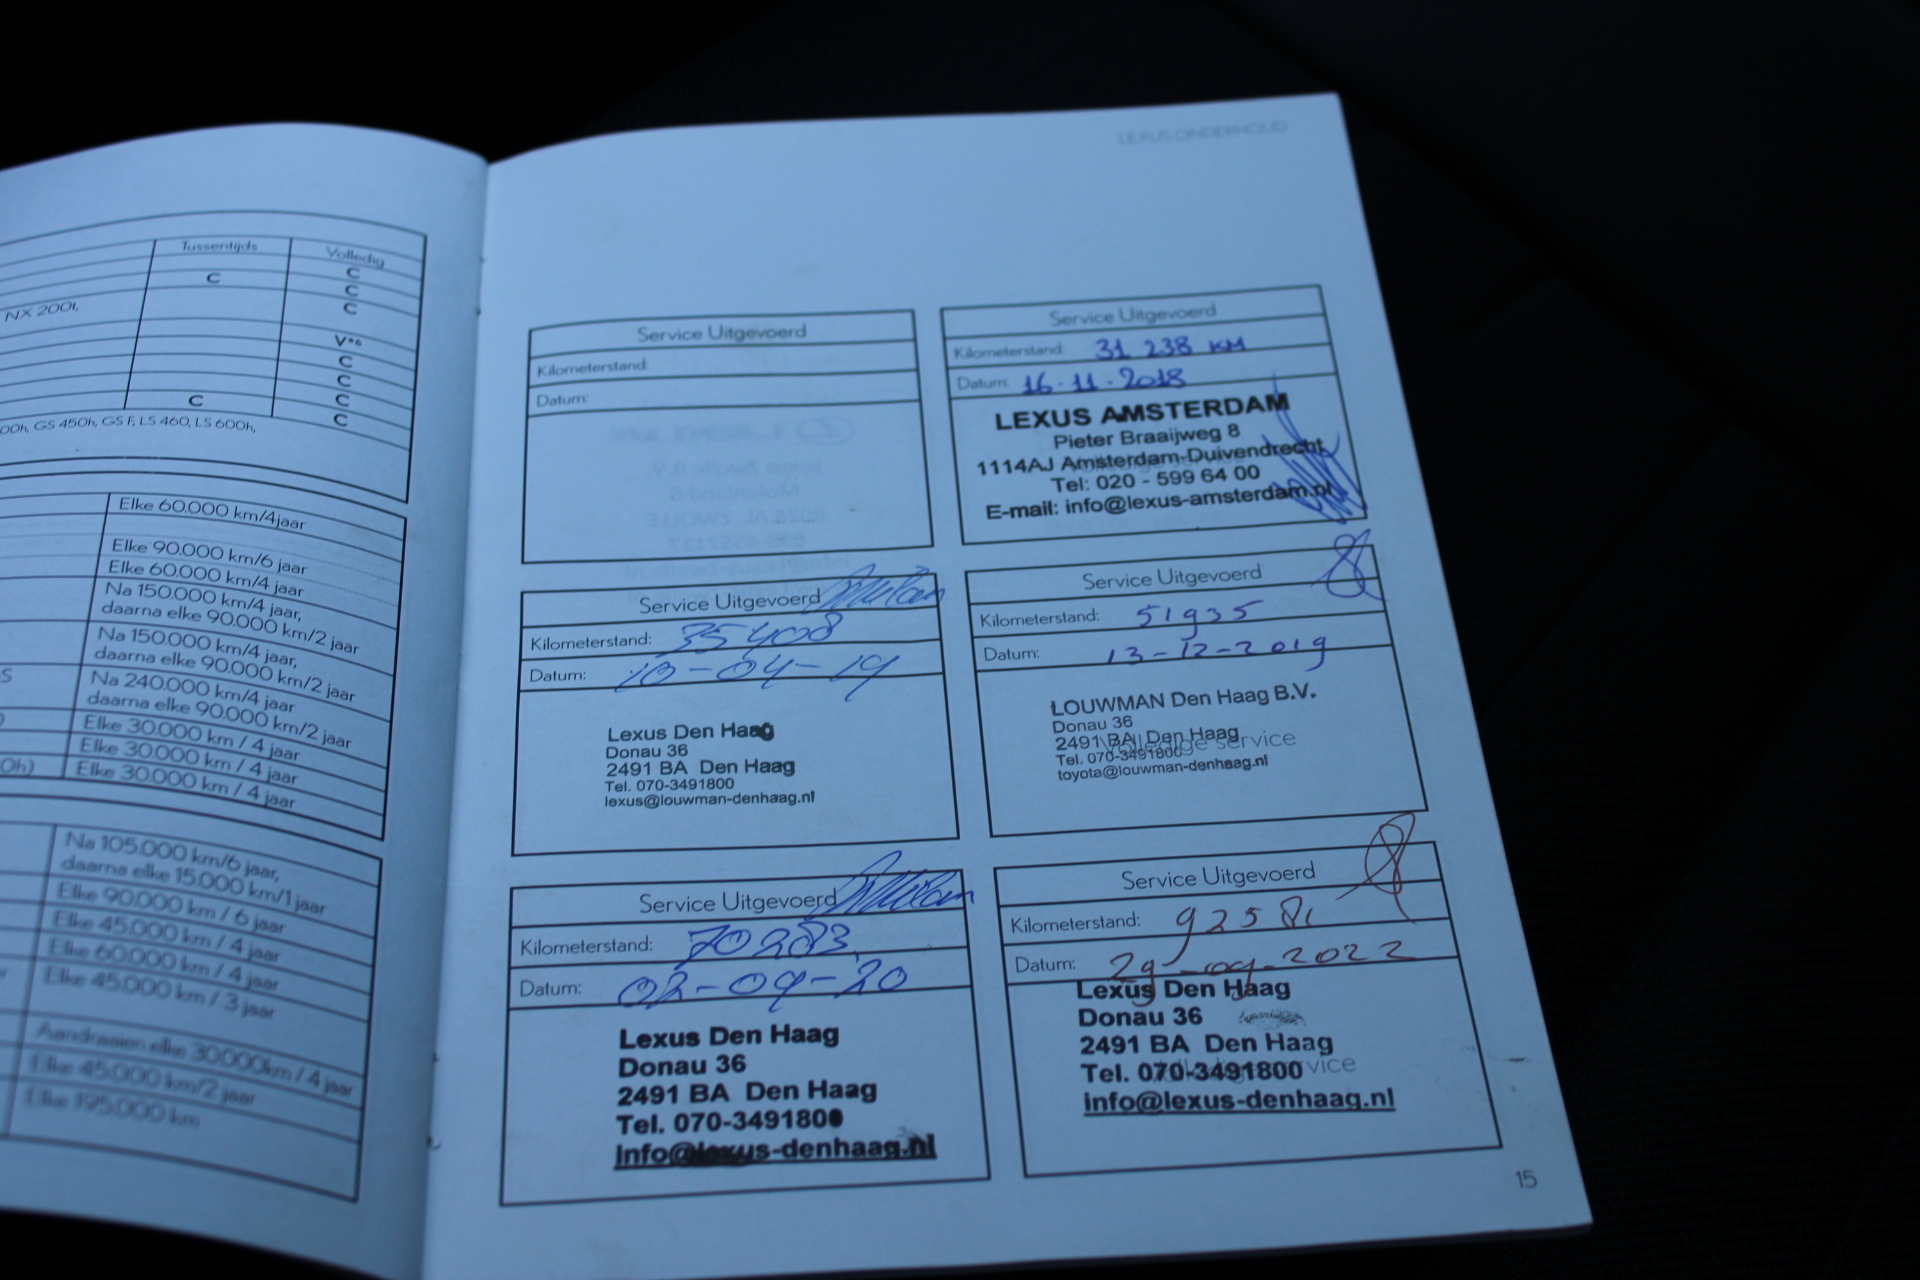 LEXUS ONDERHOUD
Tussentijds
Volledig
C
C
C
C
NX 200t,
V*6
C
C
C
C
C
00h, GS 450h, GS F, LS 460, LS 600h,
Elke 60.000 km/4jaar
Elke 90.000 km/6 jaar
Elke 60.000 km/4 jaar
Na 150.000 km/4 jaar,
daarna elke 90.000 km/2 jaar
Na 150.000 km/4 jaar,
daarna elke 90.000 km/2 jaar
S
Na 240.000 km/4 jaar
daarna elke 90.000 km/2 jaar
Elke 30.000 km / 4 jaar
Elke 30.000 km / 4 jaar
0h)
Elke 30.000 km / 4 jaar
Na 105.000 km/6 jaar,
daarna elke 15.000 km/1 jaar
Elke 90.000 km / 6 jaar
Elke 45.000 km / 4 jaar
Elke 60.000 km / 4 jaar
Elke 45.000 km / 3 jaar
Aandrassen elke 30.000km / 4 jaar
Elke 45.000 km/2 jaar
Elke 195.000 km
Service Uitgevoerd
Kilometerstand:
Datum:
Service Uitgevoerd
Kilometerstand: 31 238 KM
Datum: 16-11-2018
LEXUS AMSTERDAM
Pieter Braaijweg 8
1114AJ Amsterdam-Duivendrecht
Tel: 020 - 599 64 00
E-mail: info@lexus-amsterdam.nl
Service Uitgevoerd
Kilometerstand: 35408
Datum: 10-04-19
Lexus Den Haag
Donau 36
2491 BA Den Haag
Tel. 070-3491800
lexus@louwman-denhaag.nl
Service Uitgevoerd
Kilometerstand: 51935
Datum: 13-12-2019
LOUWMAN Den Haag B.V.
Donau 36
2491 BA Den Haag
Volledige service
Tel. 070-3491800
toyota@louwman-denhaag.nl
Service Uitgevoerd
Kilometerstand: 70283
Datum: 02-09-20
Lexus Den Haag
Donau 36
2491 BA Den Haag
Tel. 070-3491800
info@lexus-denhaag.nl
Service Uitgevoerd
Kilometerstand: 92581
Datum: 29-09-2022
Lexus Den Haag
Donau 36
2491 BA Den Haag
Tel. 070-3491800
info@lexus-denhaag.nl
15